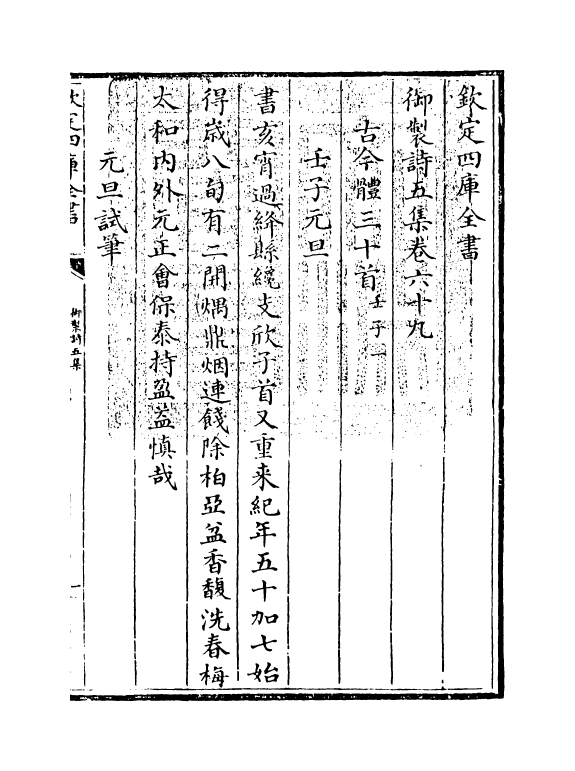 欽定四庫全書
御製詩五集卷六十九
古今體三十首壬子一
壬子元旦
書亥宵過絳縣纔支欣子首又重来紀年五十加七始
得歳八旬有二開煱鼎烟連餞除柏亞盆香馥洗春梅
太和内外元正會保泰持盈益慎哉
元旦試筆
欽定四庫全書
御製詩五集
一